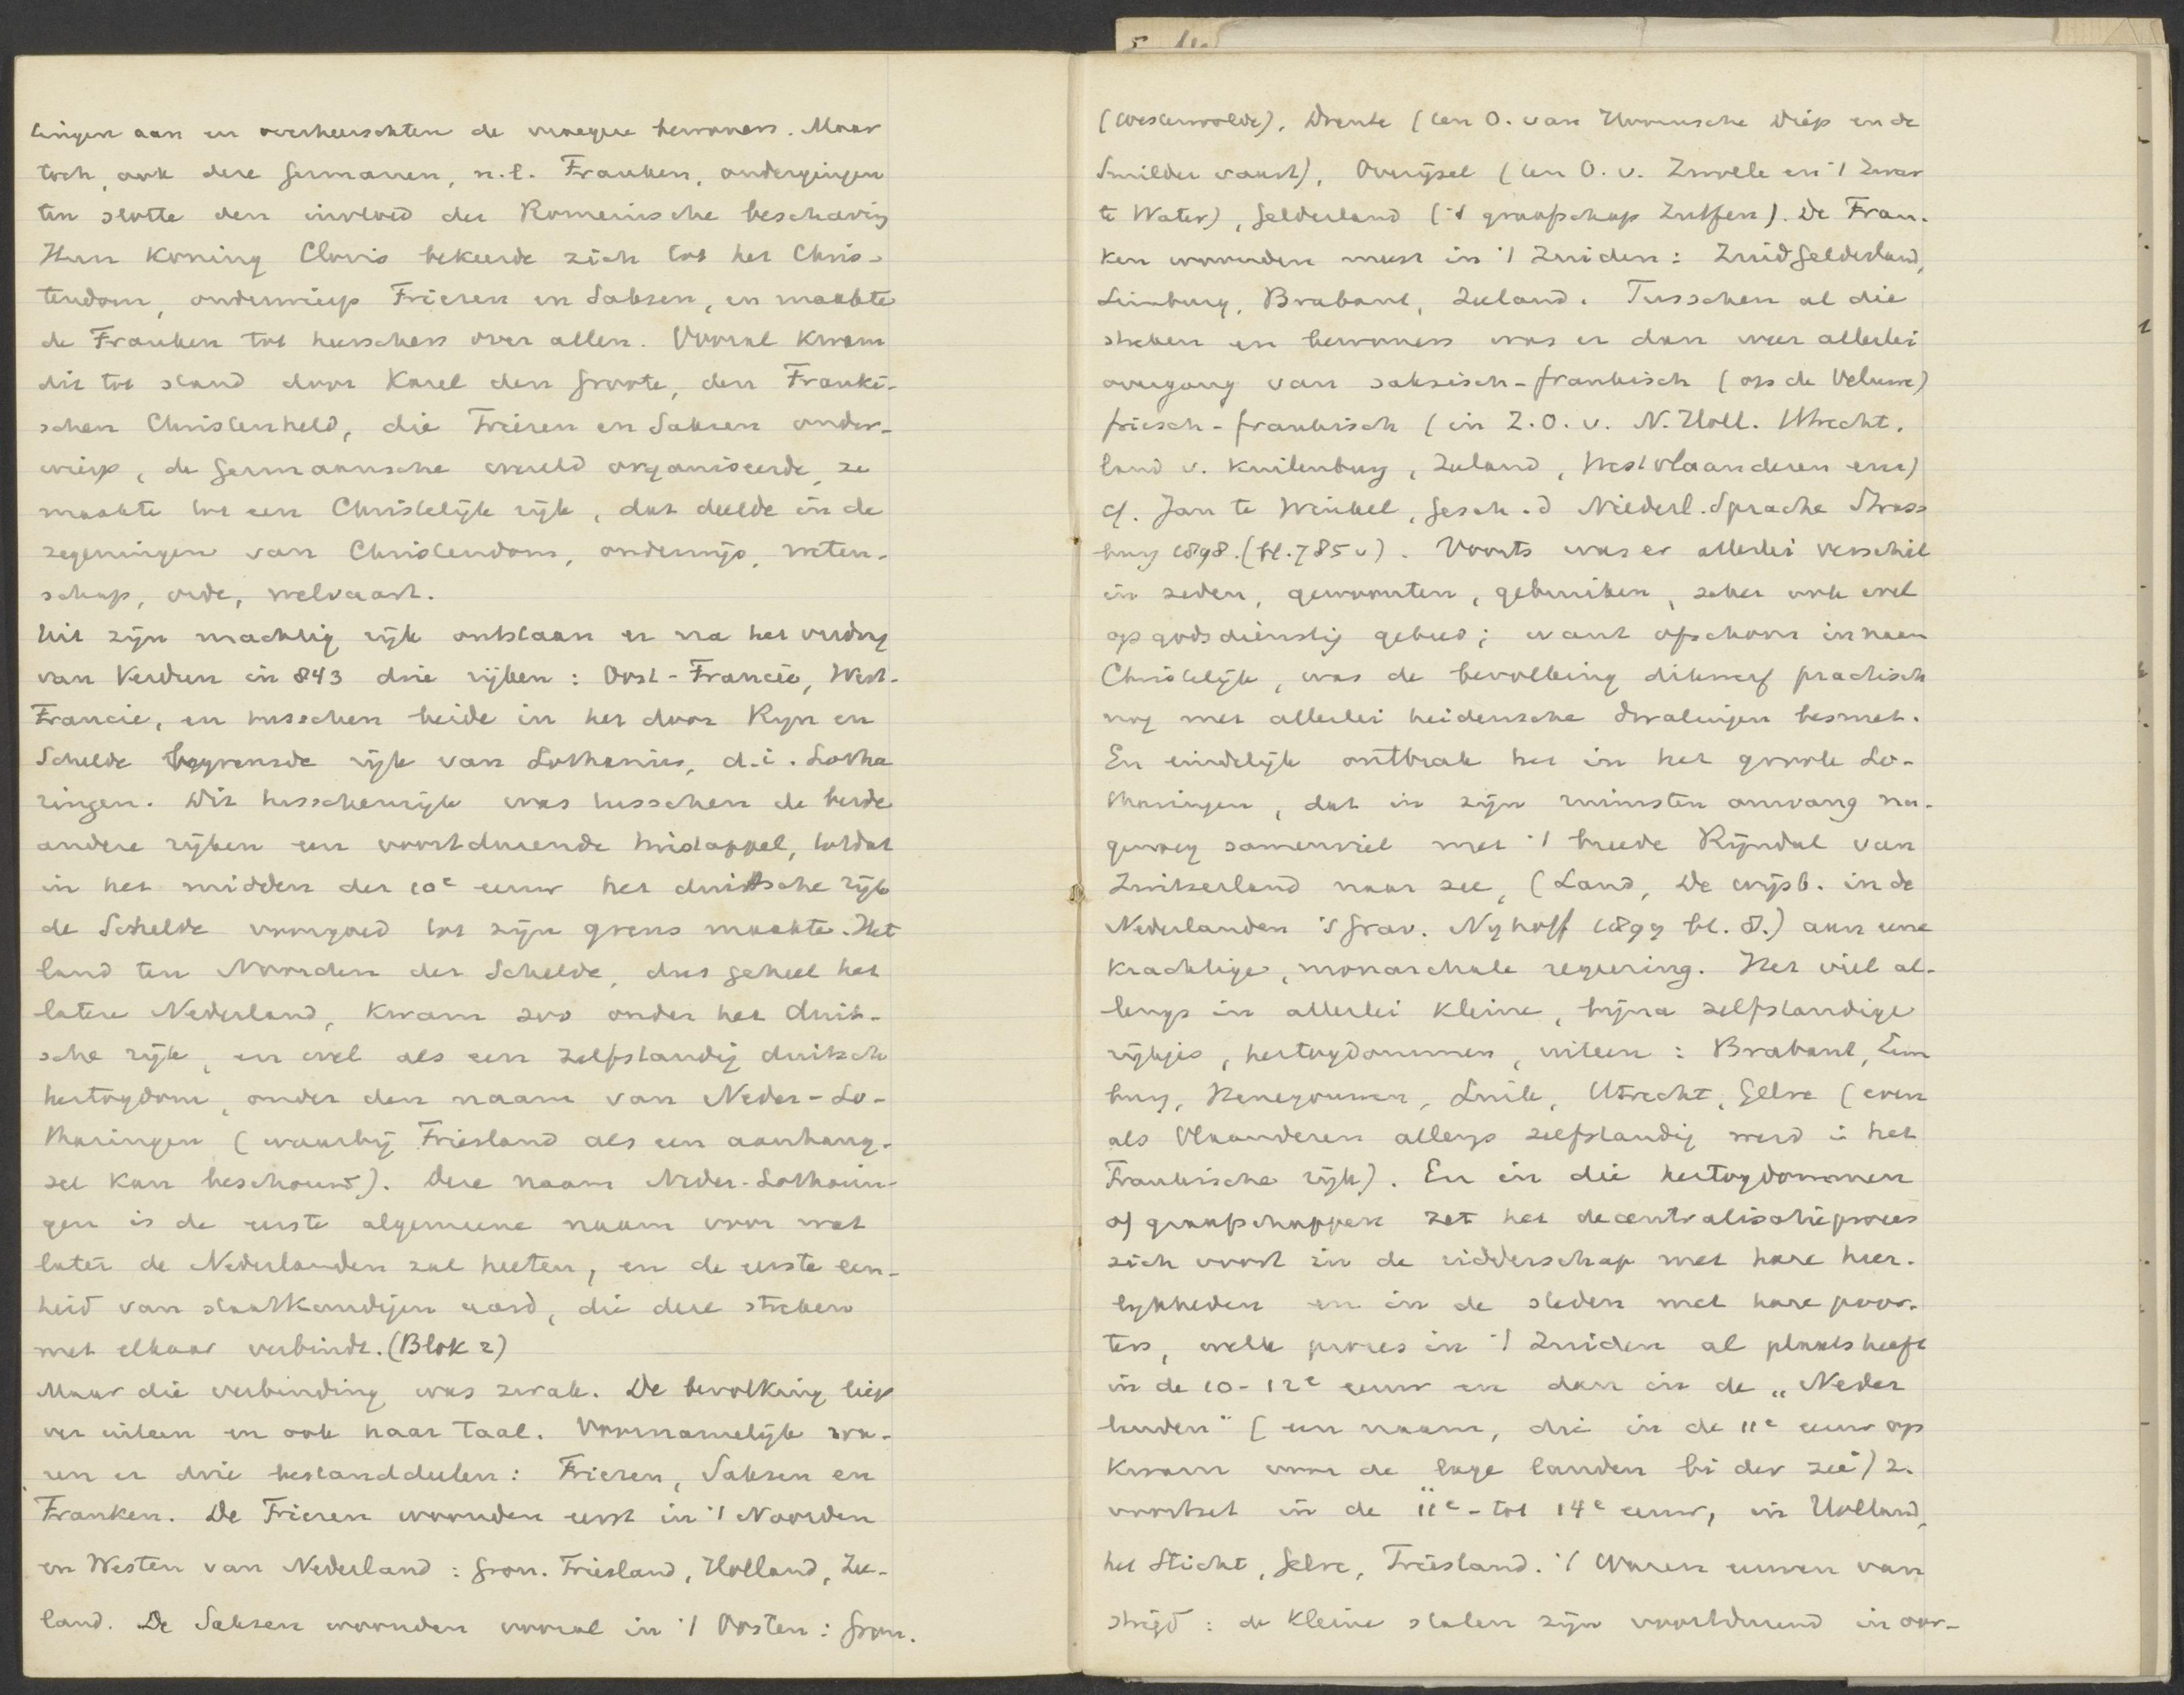 lingen aan en overheerschten de vroegere bewoners. Maar
toch, ook deze Germanen, n.l. Franken, ondergingen
ten slotte den invloed der Romeinsche beschaving
Hun Koning Clovis bekeerde zich tot het Chris-
tendom, onderwierp Friezen en Saksen, en maakte
de Franken tot heerschers over allen. Vooral kwam
dit tot stand door Karel den Groote, den Franki-
schen Christenheld, die Friezen en Saksen onder-
wierp, de Germaansche wereld organiseerde, ze
maakte tot een Christelijk rijk, dat deelde in de
zegeningen van Christendom, onderwijs, weten-
schap, orde, welvaart.
Uit zijn machtig rijk ontstaan er na het verdrag
van Verdun in 843 drie rijken: Oost-Francië, West-
Francie, en tusschen beide in het door Rijn en
Schelde begrensde rijk van Lotharius, d.i. Lotha
ringen. Dit tusschenrijk was tusschen de beide
andere rijken een voortdurende twistappel, totdat
in het midden der 10e eeuw het duitsche rijk
de Schelde voorgoed tot zijn grens maakte. Het
land ten Noorden der Schelde, dus geheel het
latere Nederland, kwam zoo onder het duit-
sche rijk, en wel als een zelfstandig duitsch
hertogdom, onder den naam van Neder-Lo-
tharingen (waarbij Friesland als een aanhang-
sel kan beschouwd). Deze naam Neder-Lotharin-
gen is de eerste algemeene naam voor wat
later de Nederlanden zal heeten, en de eerste een-
heid van staatkundigen aard, die deze streken
met elkaar verbindt. (Blok 2)
Maar die verbinding was zwak. De bevolking liep
ver uiteen en ook naar taal. Voornamelijk wa-
ren er drie bestanddeelen: Friezen, Saksen en
Franken. De Friezen woonden eerst in 't Noorden
en Westen van Nederland: Gron. Friesland, Holland, Zee-
land. De Saksen woonden vooral in 't Oosten: Gron.
(Westerwolde), Drente (ten O. van Hunnsche Diep en de
Smilder vaart), Overijsel (ten O. v. Zwolle en 't Zwar
te Water), Gelderland ('t graafschap Zutfen). De Fran-
ken woonden meer in 't Zuiden: Zuid Gelderland,
Limburg, Brabant, Zeeland. Tusschen al die
streken en bewoners was er dan weer allerlei
overgang van saksisch-frankisch (op de Veluwe)
friesch-frankisch (in Z.O. v. N. Holl. Utrecht,
land v. Kuilenburg, Zeeland, West vlaanderen enz)
cf. Jan te Winkel, Gesch. d Niederl. Sprache Strass
burg 1898. (bl. 785 v). Voorts was er allerlei verschil
in zeden, gewoonten, gebruiken, zeker ook wel
op godsdienstig gebied; want ofschoon in naam
Christelijk, was de bevolking dikwerf practisch
nog met allerlei heidensche dwalingen besmet.
En eindelijk ontbrak het in het groote Lo-
tharingen, dat in zijn ruimsten omvang na-
genoeg samenviel met 't breede Rijndal van
Zwitserland naar zee, (Land, De wijsb. in de
Nederlanden 's Grav. Nyhoff 1899 bl. 8.) aan eene
krachtige, monarchale regeering. Het viel al-
lengs in allerlei kleine, bijna zelfstandige
rijkjes, hertogdommen, uiteen: Brabant, Lim
burg, Henegouwen, Luik, Utrecht, Gelre (even
als Vlaanderen allengs zelfstandig werd in het
Frankische rijk). En in die hertogdommen
of graafschappen zet het decentralisatieproces
zich voort in de ridderschap met hare heer-
lykheden en in de steden met hare poor-
ters, welk proces in 't Zuiden al plaats heeft
in de 10-12e eeuw en dan in de „Neder
landen" (een naam, die in de 11e eeuw op
kwam voor de lage landen bi der zee) z.
voortzet in de 11e-tot 14e eeuw, in Holland,
het Sticht, Gelre, Friesland. 't Waren eeuwen van
strijd: de kleine staten zijn voortdurend in oor-